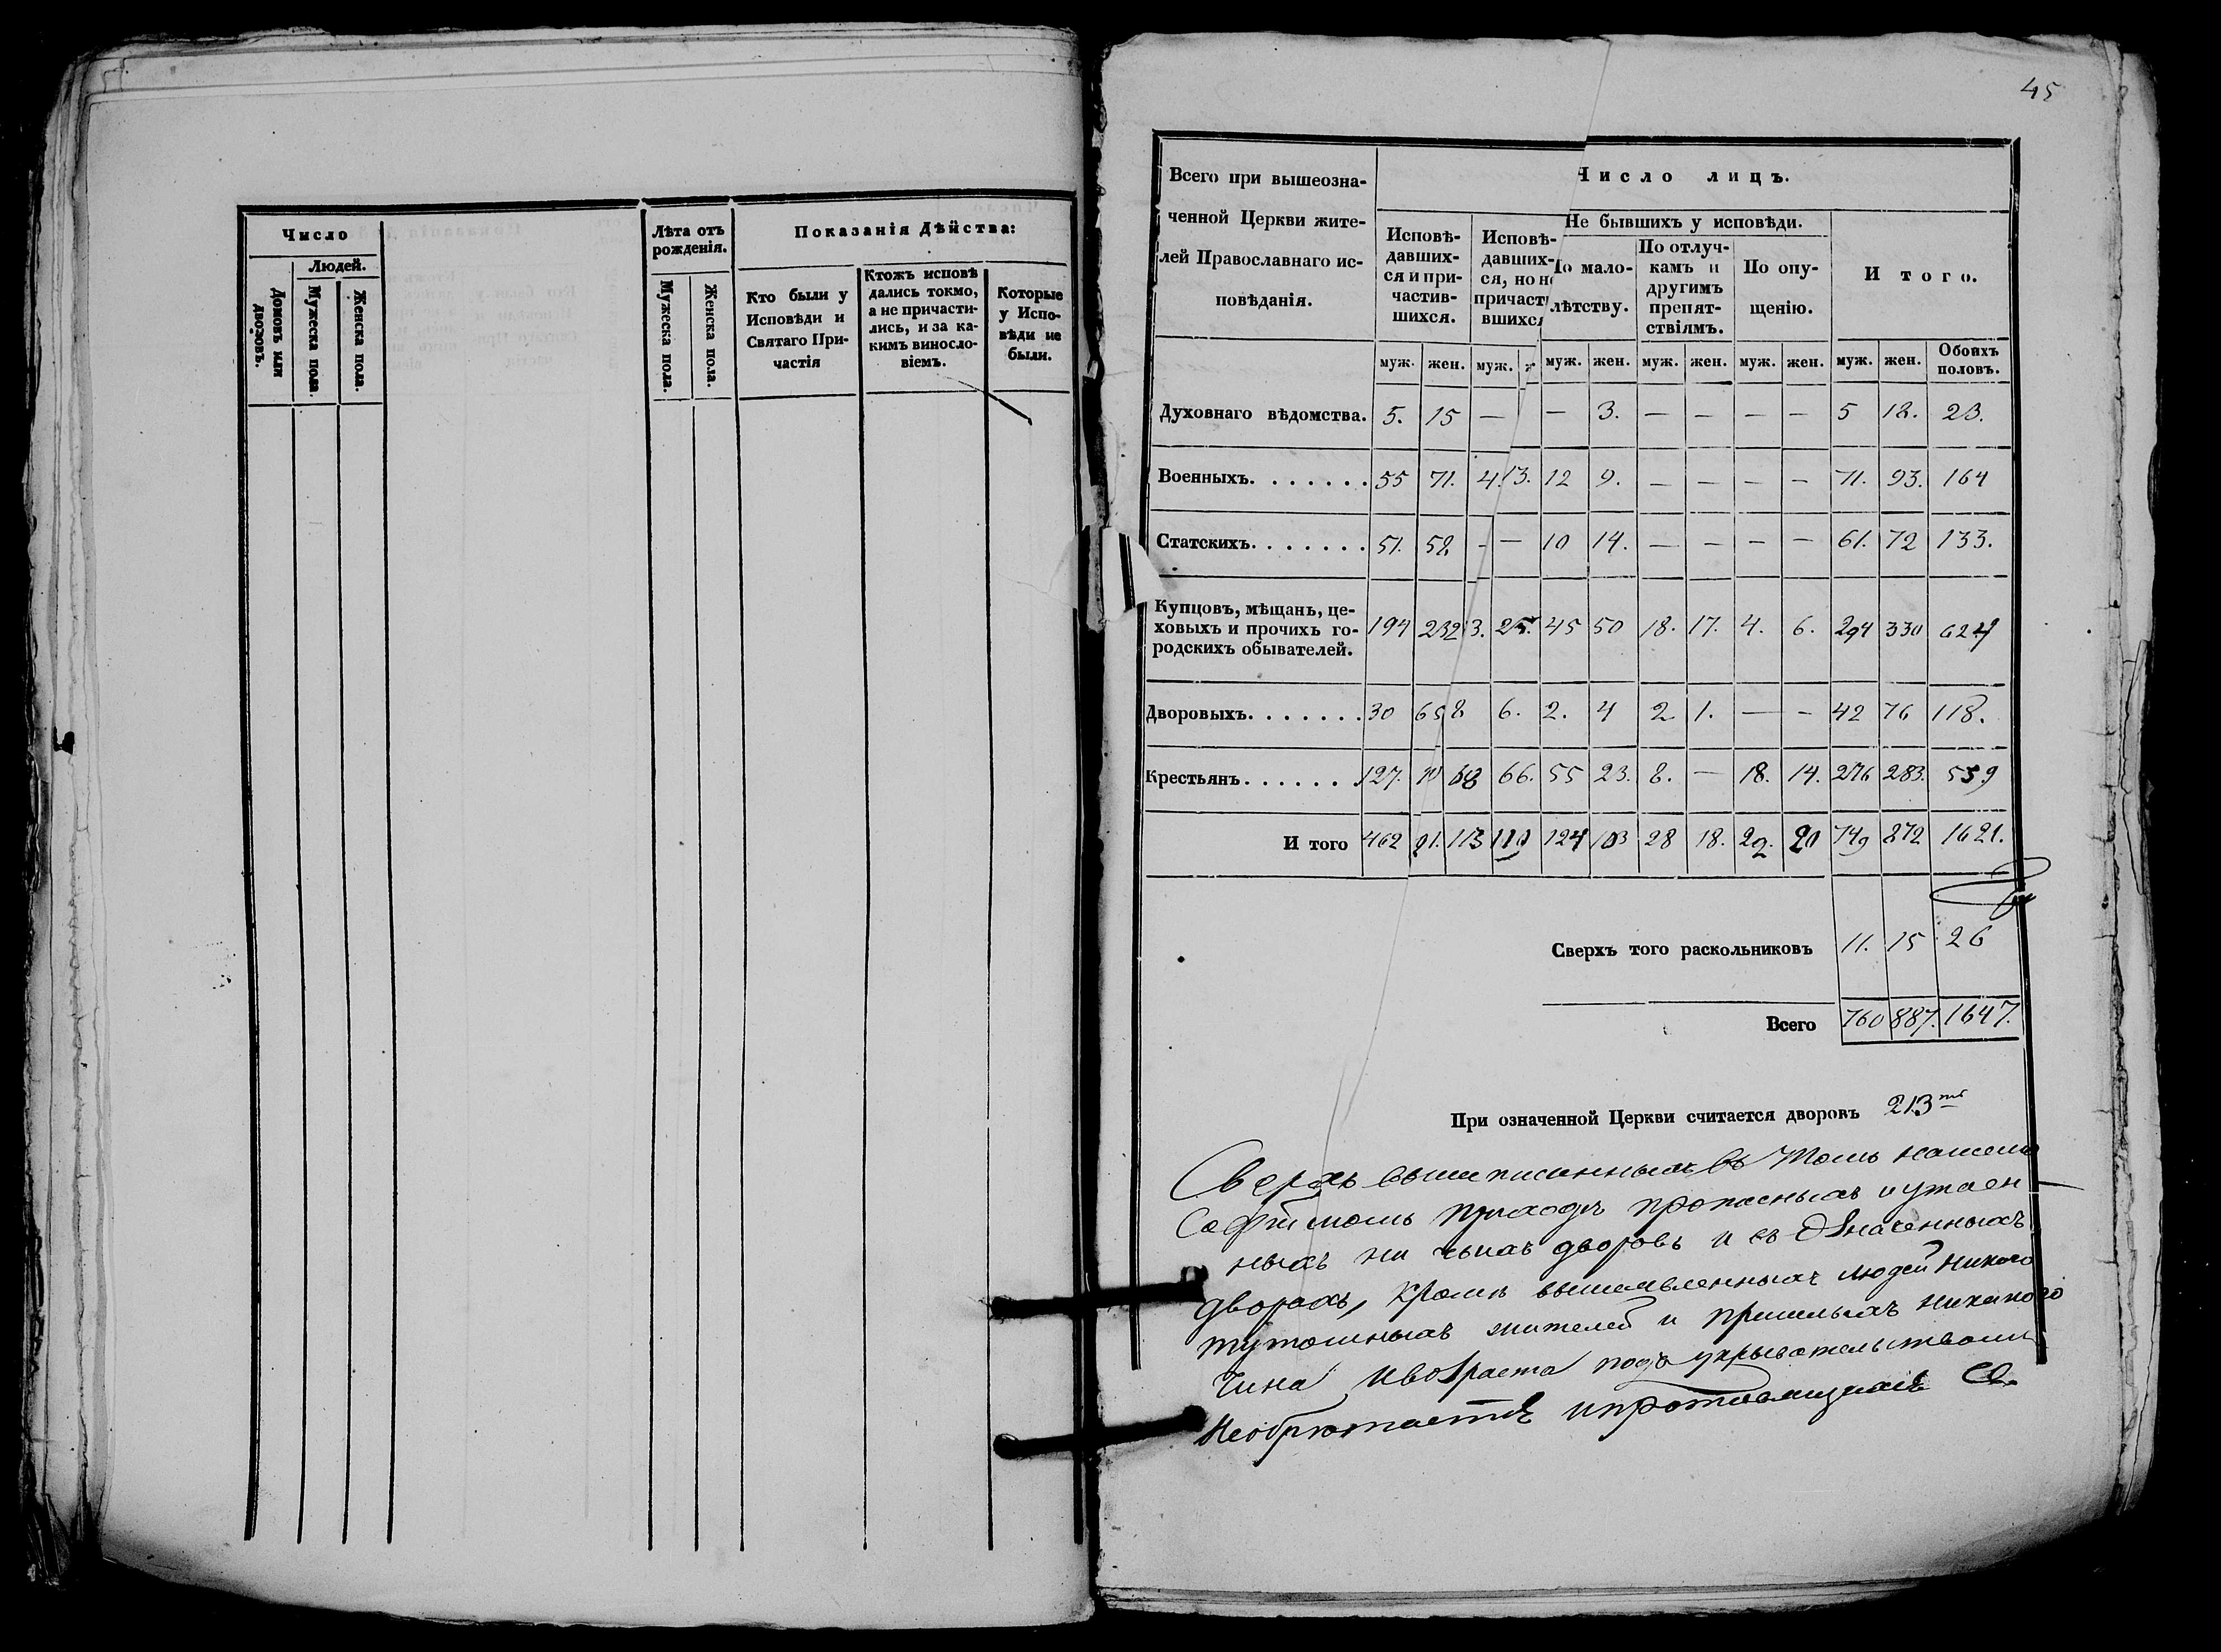 45
Число
Людей.
Домовъ или дворовъ.
Мужеска пола.
Женска пола.
Лѣта отъ рожденія.
Мужеска пола.
Женска пола.
Показанія Дѣйства:
Кто были у Исповѣди и Святаго Причастія
Ктожъ исповѣдались токмо, а не причастились, и за какимъ винословіемъ.
Которые у Исповѣди не были.
Всего при вышеозна-
ченной Церкви жите-
лей Православнаго ис-
повѣданія.
Число лицъ.
Исповѣ-
давших-
ся и при-
частив-
шихся.
Исповѣ-
давших-
ся, но не
причаст
вшихся
Не бывшихъ у исповѣди.
По мало-
лѣтству.
По отлуч-
камъ и
другимъ
препят-
ствіямъ.
По опу-
щенію.
Итого.
муж. жен. муж. ж муж. жен. муж. жен. муж. жен. муж. жен. Обоихъ половъ.
Духовнаго вѣдомства. 5. 15 — — 3. — — — — 5 18. 23.
Военныхъ. . . . . . . 55 71. 4. 13. 12 9. — — — — 71. 93. 164
Статскихъ. . . . . . . 51. 58 - — 10 14. — — — — 61. 72 133.
Купцовъ, мѣщанъ, це-
ховыхъ и прочихъ го-
родскихъ обывателей.
194 232 3. 25. 45 50 18. 17. 4. 6. 294 330 624
Дворовыхъ. . . . . . . 30 65 8 6. 2. 4 2 1. — - 42 76 118.
Крестьянъ. . . . . . . 127. 68 66. 55 23. 8. — 18. 14. 276 283. 559
И того 462 91. 113 110 124 103 28 18. 22. 20 749 872 1621.
Сверхъ того раскольниковъ 11. 15 26
Всего 760 887. 1647.
При означенной Церкви считается дворовъ 213
Сверхъ вышеписанныхъ въ томъ нашемъ
приходѣ прописныхъ и утаен
ныхъ ни чьихъ дворовъ и въ означенныхъ
дворахъ, кромѣ вышеявленныхъ людей никого
тутошныхъ жителей и пришлыхъ никакого
чина и возраста подъ укрывательствомъ
необрѣтается